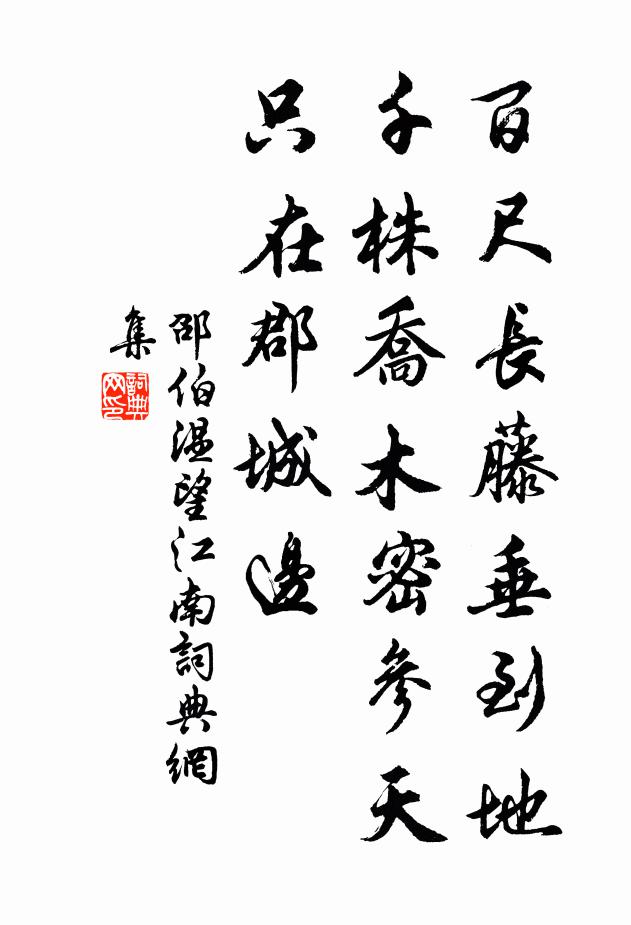 百尺長藤垂到地
千株喬木密參天
只在郡城邊
邵伯温望江南詞典網
集
詞典
网印